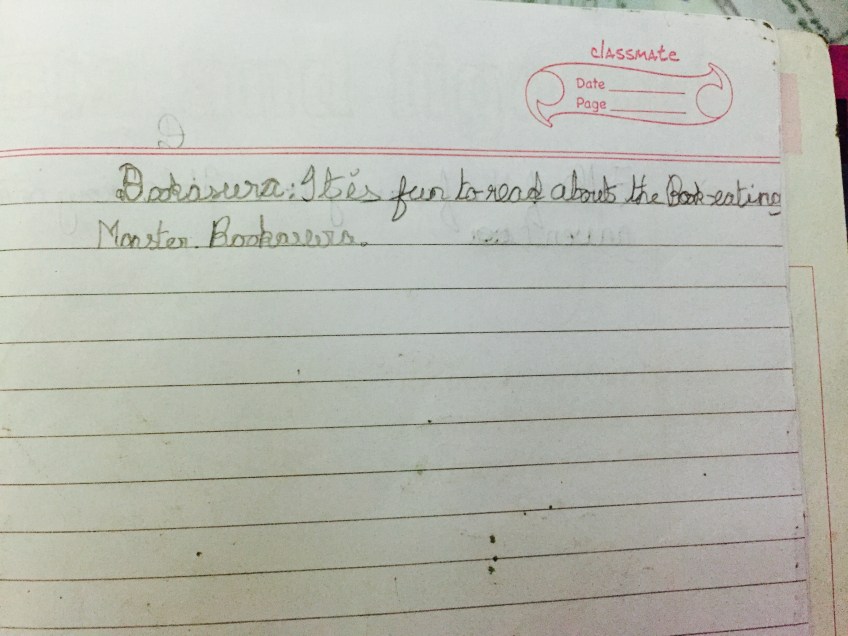 classmate
Date
Page
Bookasura: It is fun to read about the Book-eating
Monster. Bookasura.